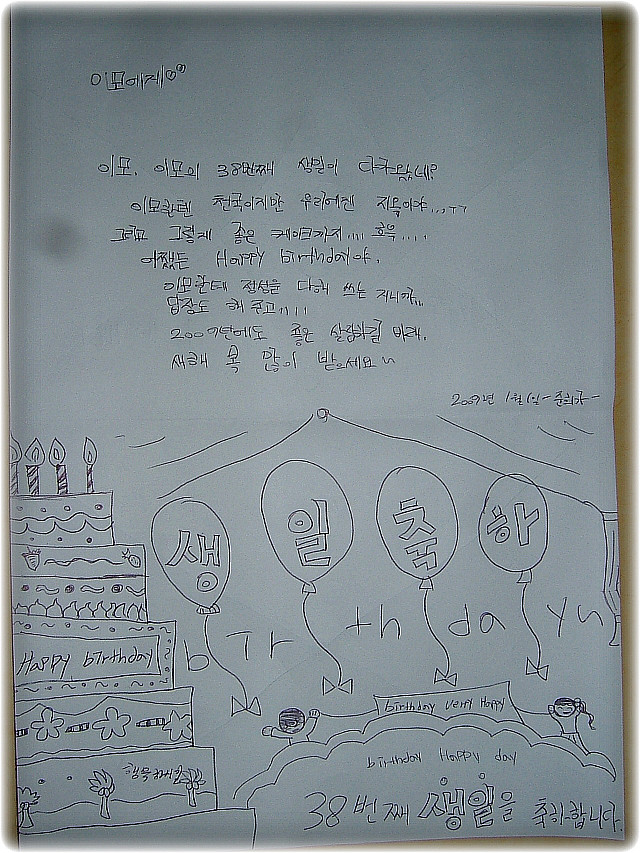 이모에게
이모. 이모의 38번째 생일이 다가왔네?
이모한텐 천국이지만 우리에겐 지옥이야...ㅜㅜ
그리고 그렇게 좋은 케이크까지.... 흐윽....
어쨌든 Happy birthday야.
이모한테 정성을 다해 쓰는 거니까...
답장도 해 주고....
2009년에도 좋은 살림하길 바래.
새해 복 많이 받으세요~
2009년 1월 1일 -준희가-
생 일 축 하
birthday yu
Happy birthday
birthday verry Happy
birthday Happy day
행복해요
38번째 생일을 축하합니다.